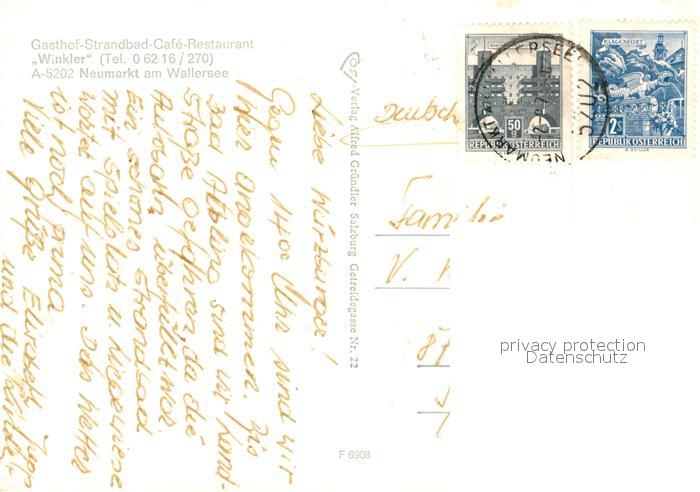 Gasthof-Strandbad-Café-Restaurant
„Winkler" (Tel. 0 62 16 / 270)
A-5202 Neumarkt am Wallersee
Liebe Würzburger!
Gegen 14⁰⁰ Uhr sind wir
hier angekommen. Bis
Bad Aibling sind wir Land-
straße gefahren da die
Autobahn überfüllt war.
Ein schönes Strandbad
mit Spielplatz u. Liegewiese
wartet auf uns. Das Wetter
ist noch prima.
Viele Grüße Elisabeth, Jupp
und die Kinder
Verlag Alfred Gründler Salzburg Getreidegasse Nr. 22
F 6908
Familie
V.
50
g
REPUBLIK ÖSTERREICH
KLAGENFURT
2S
REPUBLIK ÖSTERREICH
NEUMARKT
privacy protection
Datenschutz